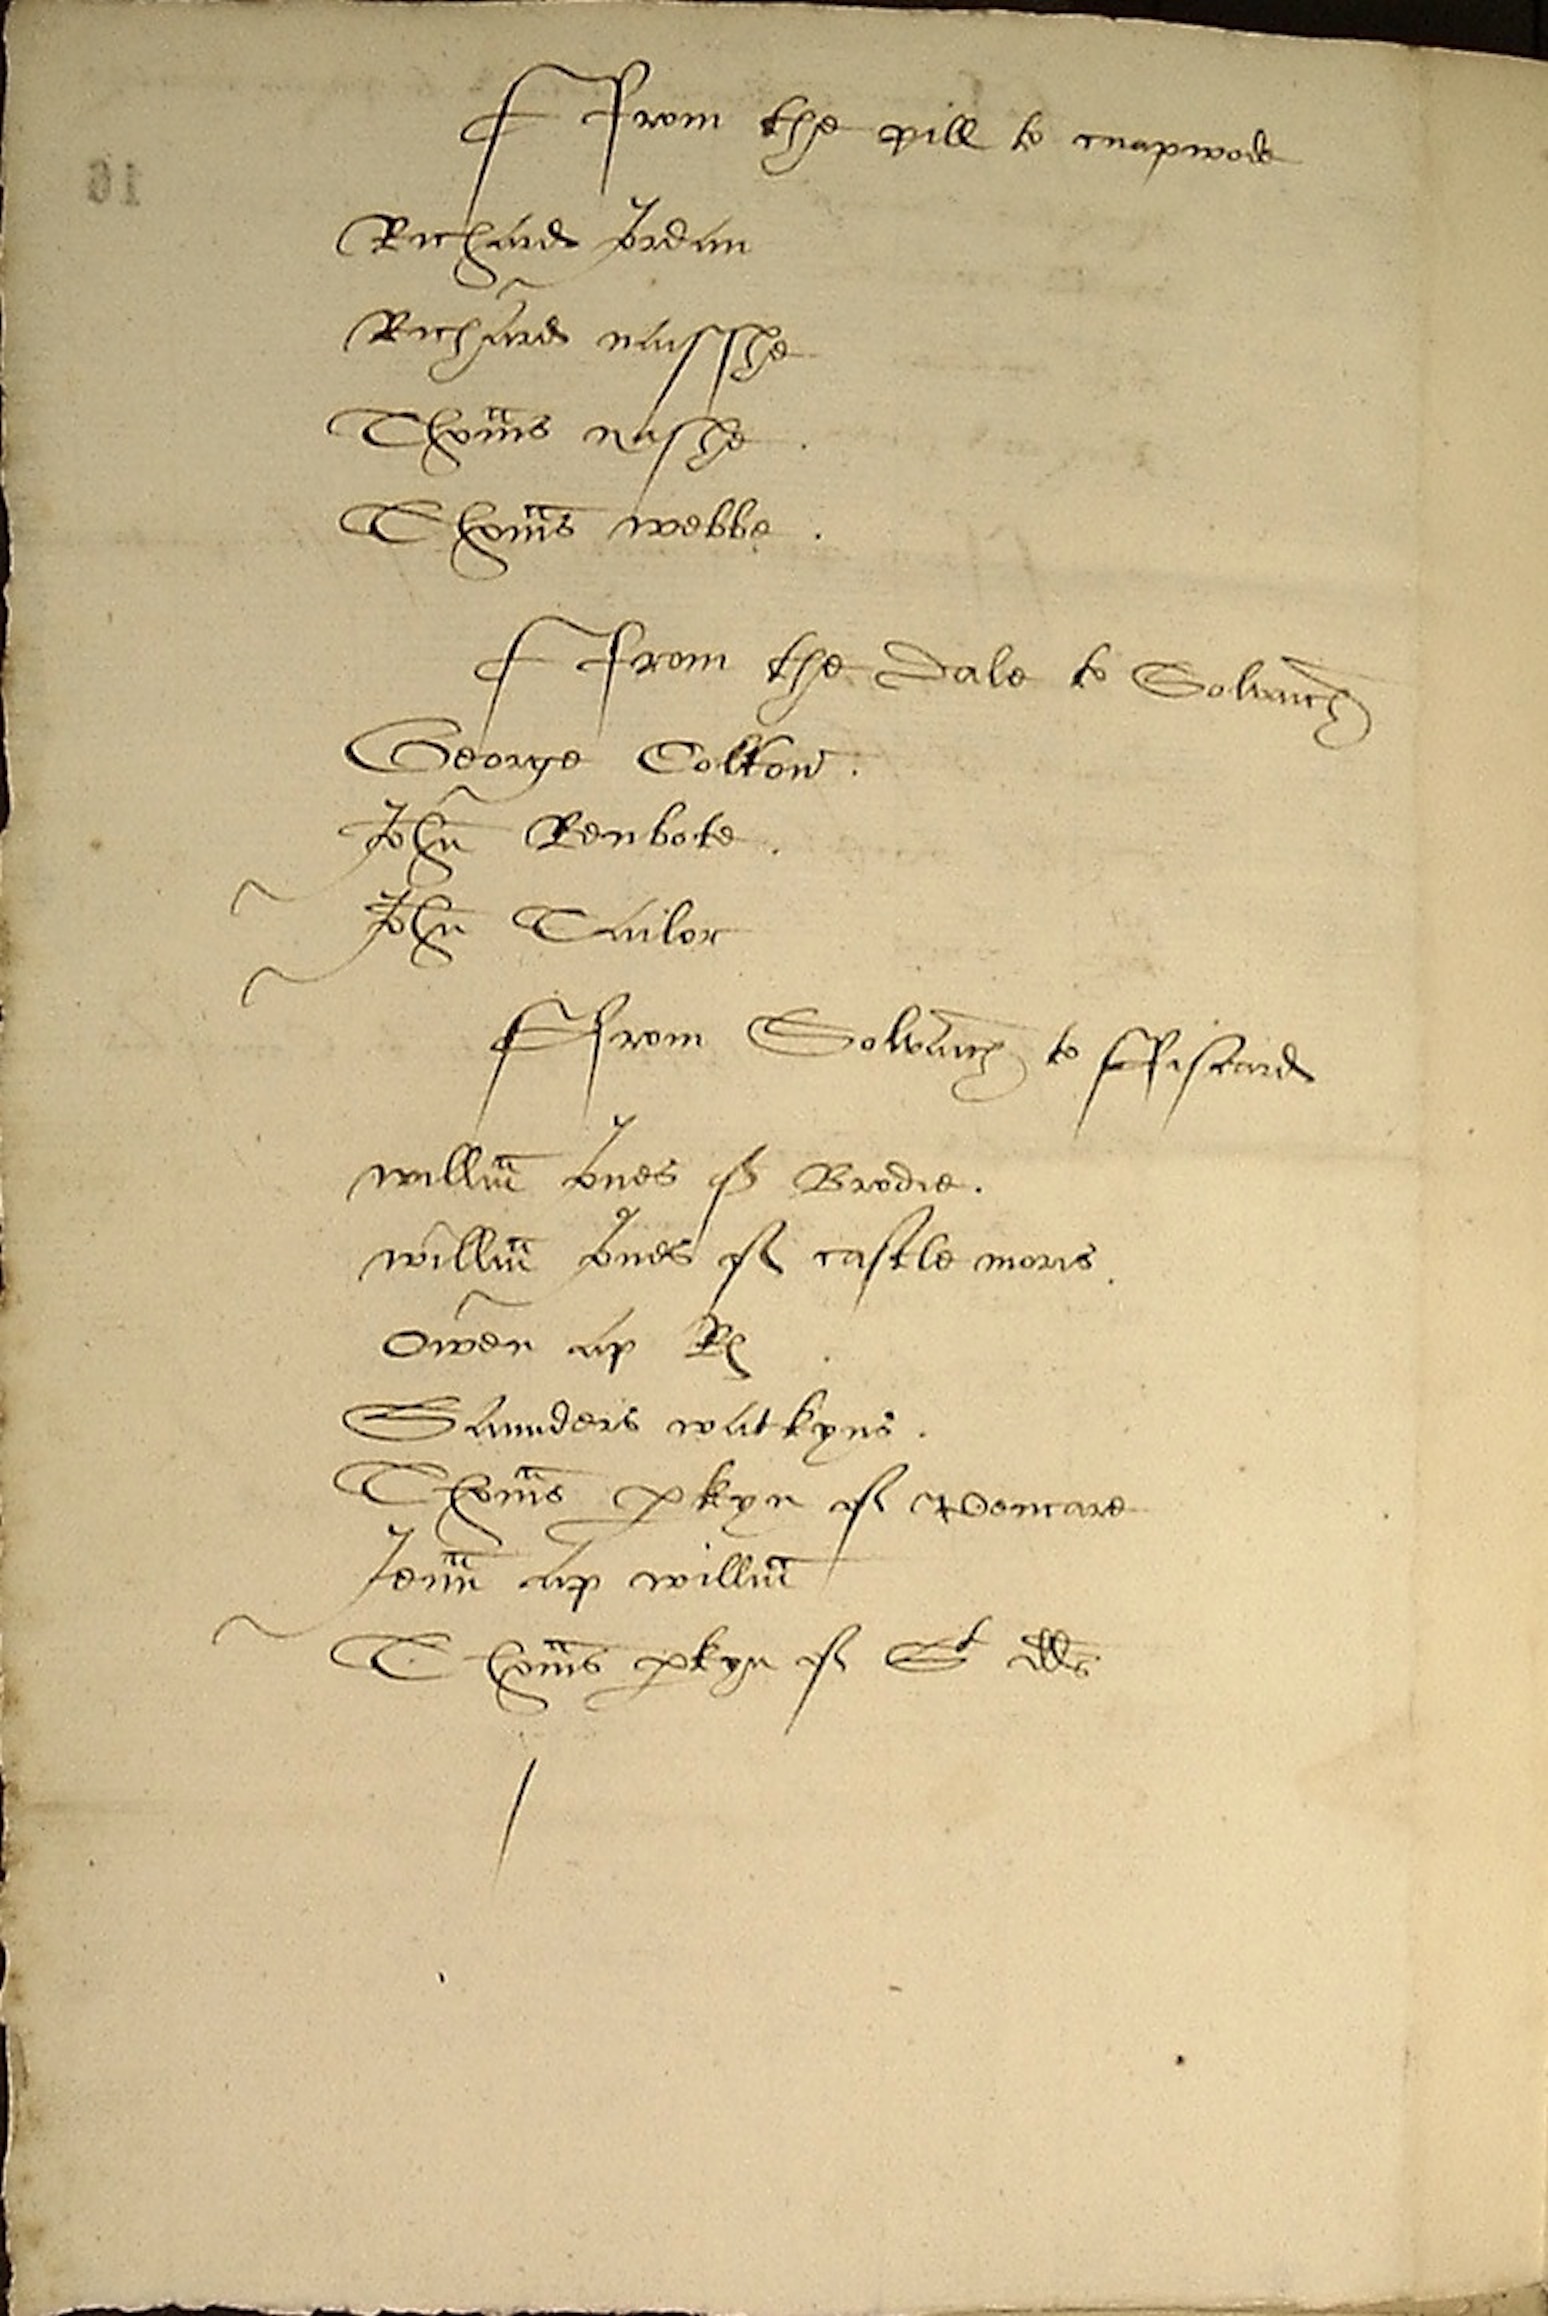 From the pill to cnapwode
Richard Jordan
Richard nasshe
Thom̃s nashe .
Thom̃s webbe .
From the Dale to Solvach
George Colton .
John Renbote .
John Tailor
From Solvach to Fistard
willm̃ Jones of Brodie .
willm̃ Jones of castle moris .
Owen ap Rh
Saunders watkyns .
Thom̃s pkyn of
Jeũn ap willm̃
Thom̃s pkyn of St